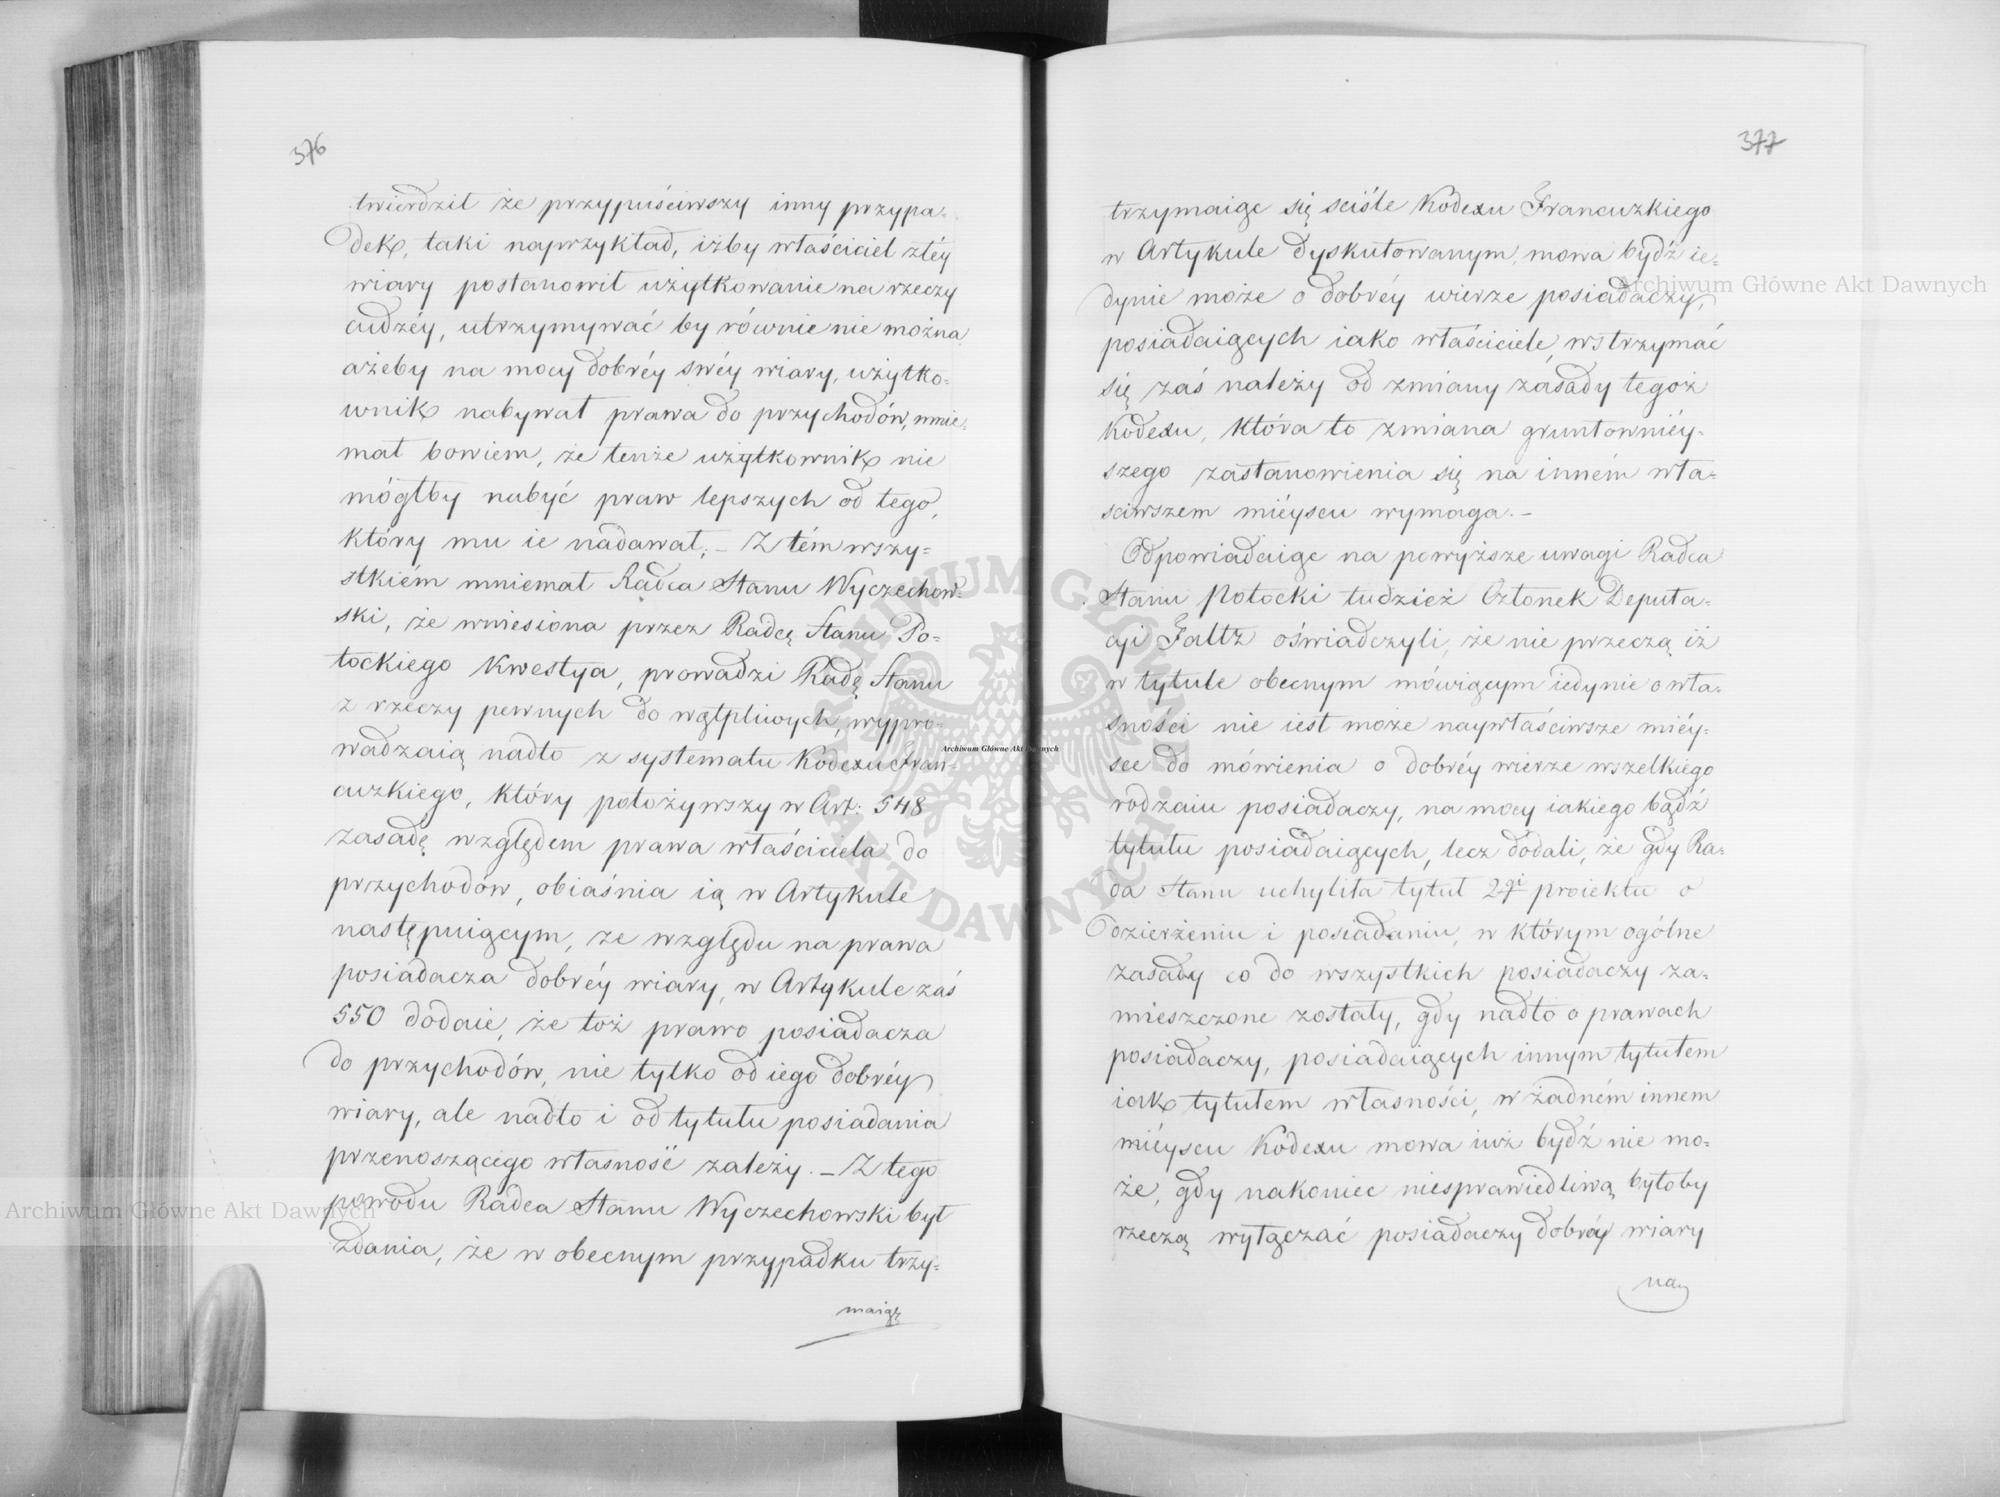 376
twierdził że przypuściwszy inny przypa-
dek, taki naprzykład, iżby właściciel złéy
wiary postanowił użytkowanie na rzeczy
cudzéy, utrzymywać by równie nie można
ażeby na mocy dobréy swéy wiary, użytko-
wnik nabywał prawa do przychodów, mnie-
mał bowiem, że tenże użytkownik nie
mógłby nabyć praw lepszych od tego,
który mu ie nadawał. – Z tém wszy-
stkiém mniemał Radca Stanu Wyczechow-
ski, że wniesiona przez Radcę Stanu Po-
tockiego kwestya, prowadzi Radę Stanu
z rzeczy pewnych do wątpliwych, wypro-
wadzaią nadto z systematu Kodexu Fran-
cuzkiego, który położywszy w Art: 548
zasadę względem prawa właściciela do
przychodów, obiaśnia ią w Artykule
następuiącym, ze względu na prawa
posiadacza dobréy wiary, w Artykule zaś
550 dodaie, że toż prawo posiadacza
do przychodów, nie tylko od iego dobréy
wiary, ale nadto i od tytułu posiadania
przenoszącego własność zależy. – Z tego
powodu Radca Stanu Wyczechowski był
zdania, że w obecnym przypadku trzy-
maiąc
377
trzymaiąc się sciśle Kodexu Francuzkiego
w Artykule dyskutowanym, mowa bydź ie-
dynie może o dobréy wierze posiadaczy,
posiadaiących iako właściciele, wstrzymać
się zaś należy od zmiany zasady tegoż
Kodexu, która to zmiana gruntownièy-
szego zastanowienia się na inném wła-
sciwszem miéyscu wymaga. –
Odpowiadaiąc na powyższe uwagi Radca
Stanu Potocki tudzież Członek Deputa-
cyi Faltz oświadczyli, że nie przeczą iż
w tytule obecnym mówiącym iedynie o wła-
sności nie iest może naywłaściwsze miéy-
sce do mówienia o dobréy wierze wszelkiego
rodzaiu posiadaczy, na mocy iakiego bądź
tytułu posiadaiących, lecz dodali, że gdy Ra-
da Stanu uchyliła tytuł 2gi proiektu o
dzierżeniu i posiadaniu, w którym ogólne
zasady co do wszystkich posiadaczy za-
mieszczone zostały, gdy nadto o prawach
posiadaczy, posiadaiących innym tytułem
iak tytułem własności, w żadném innem
miéyscu Kodexu mowa iuż bydź nie mo-
że, gdy nakoniec niesprawiedliwą byłoby
rzeczą wyłączać posiadaczy dobréy wiary
na
Archiwum Główne Akt Dawnych
Archiwum Główne Akt Dawnych
Archiwum Główne Akt Dawnych
ARCHIWUM GŁÓWNE AKT DAWNYCH